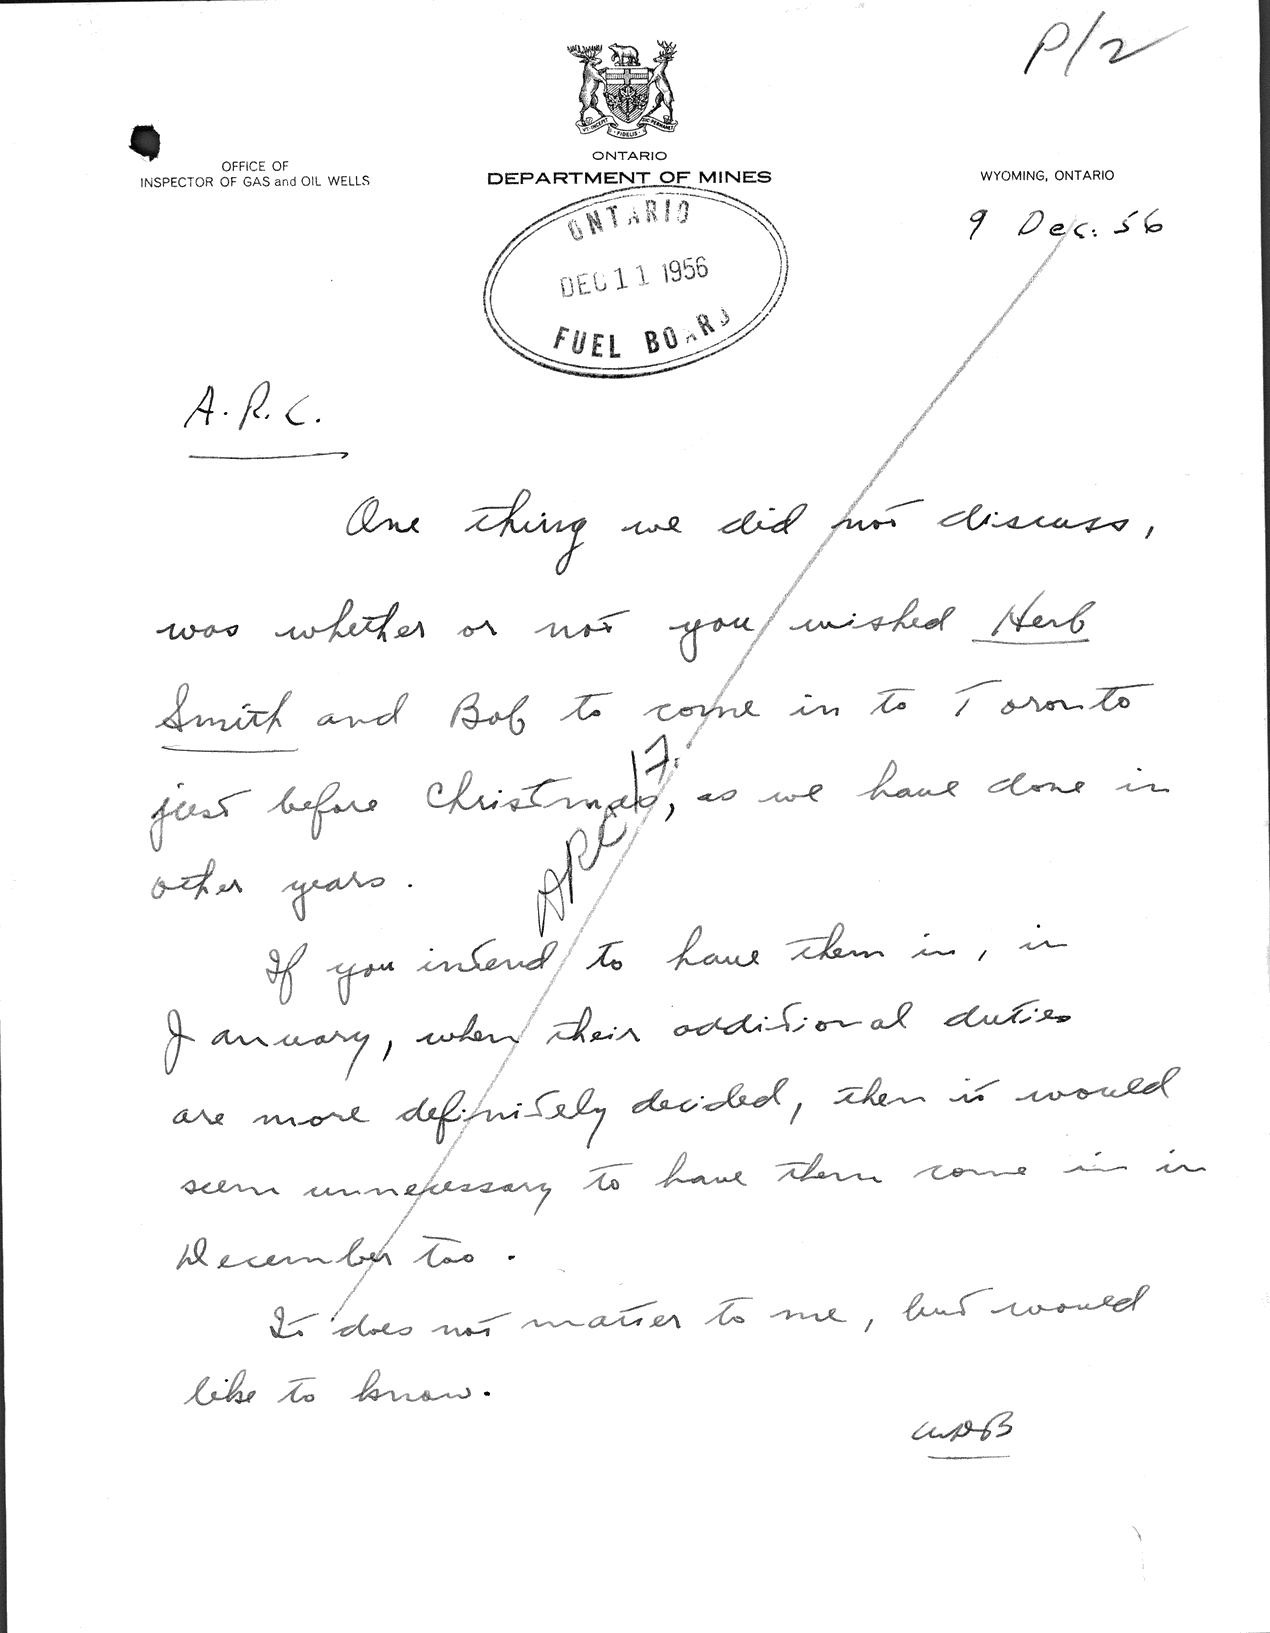 P/2
UT INCEPIT
FIDELIS
SIC PERMANET
OFFICE OF
INSPECTOR OF GAS and OIL WELLS
ONTARIO
DEPARTMENT OF MINES
WYOMING, ONTARIO
9 Dec. 56
ONTARIO
DEC 11 1956
FUEL BOARD
A.R.C.
One thing we did not discuss,
was whether or not you wished Herb
Smith and Bob to come in to Toronto
just before Christmas, as we have done in
other years.
ARC/7.
If you intend to have them in, in
January, when their additional duties
are more definitely decided, then it would
seem unnecessary to have them come in in
December too.
It does not matter to me, but would
like to know.